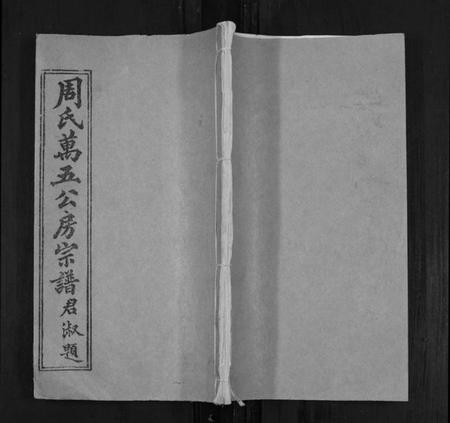 周氏萬五公房宗譜君淑題